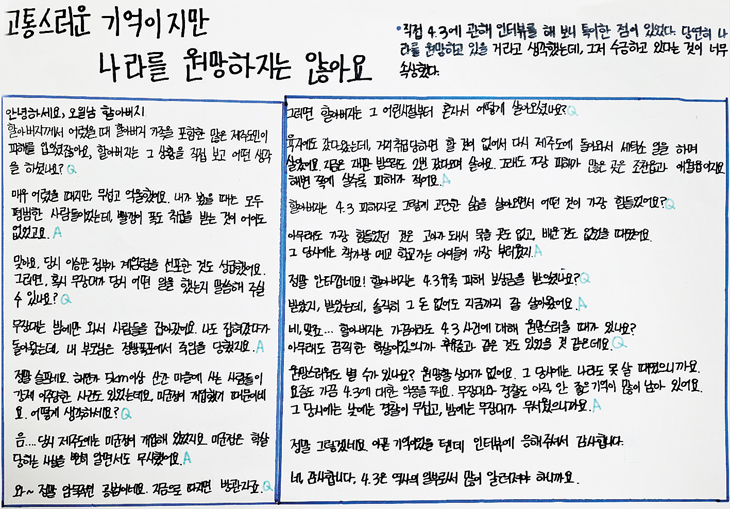 고통스러운 기억이지만
나라를 원망하지는 않아요
•직접 4.3에 관해 인터뷰를 해 보니 특이한 점이 있었다. 당연히 나
라를 원망하고 있을 거라고 생각했는데, 그저 수긍하고 있다는 것이 너무
속상했다.
안녕하세요, 오월남 할아버지
할아버지께서 어렸을 때 할아버지 가족을 포함한 많은 제주도민이
피해를 입었잖아요, 할아버지는 그 상황을 직접 보고 어떤 생각
을 하셨나요? Q
매우 어렸을 때지만 무섭고 억울했어요. 내가 봤을 때는 모두
평범한 사람들이었는데, 빨갱이 폭도 취급을 받는 것이 어이도
없었고요. A
맞아요. 당시 이승만 정부가 계엄령을 선포한 것도 성급했어요.
그러면, 혹시 무장대가 당시 어떤 일을 했는지 말씀해 주실
수 있나요? Q
무장대는 밤에만 와서 사람들을 잡아갔어요. 나도 잡혀갔다가
돌아왔는데, 내 부모님은 정방폭포에서 죽임을 당했지요. A
정말 슬프네요. 해안가 5km이상 산간 마을에 사는 사람들이
강제 이주당한 사건도 있었는데요, 미군정이 개입했기 때문이네
요. 어떻게 생각하세요? Q
음.... 당시 제주도에는 미군정이 개입해 있었지요. 미군정은 학살
당하는 사실을 뻔히 알면서도 무시했어요. A
와~ 정말 암묵적인 공범이네요. 지금으로 따지면 방관자죠. Q
그러면 할아버지는 그 어린시절부터 혼자서 어떻게 살아오셨나요? Q
육지에도 갔다왔는데, 거지취급당하면 할 것이 없어서 다시 제주도에 돌아와서 세탁소 일을 하며
살았어요. 지금은 재판 받으러도 2번 갔다오며 살아요. 그래도 가장 피해가 많은 곳은 조천읍과 애월읍이지요.
해변 쪽에 살수록 피해가 적어요. A
할아버지는 4.3 피해자로 그렇게 고단한 삶을 살아오면서 어떤 것이 가장 힘들었어요? Q
아무래도 가장 힘들었던 것은 고아가 돼서 묵을 곳도 없고, 배운 것도 없었을 때였어요.
그 당시에는 책가방 메고 학교가는 아이들이 가장 부러웠지. A
정말 안타깝네요! 할아버지는 4.3유족 피해 보상금을 받았었나요? Q
받았지, 받았는데, 솔직히 그 돈 없어도 지금까지 잘 살아왔어요. A
네, 맞죠... 할아버지는 가끔이라도 4.3 사건에 대해 원망스러울 때가 있나요?
아무래도 끔찍한 학살이었으니까 후유증과 같은 것도 있었을 것 같은데요. Q
원망스러워도 별 수가 있나요? 원망할 상대가 없어요. 그 당시에는 나라도 못 살 때였으니까요.
요즘도 가끔 4.3에 대한 악몽을 꿔요. 무장대와 경찰도 아직, 안 좋은기억이 많이 남아 있어요.
그 당시에는 낮에는 경찰이 무섭고, 밤에는 무장대가 무서웠으니까요. A
정말 그렇겠네요. 아픈 기억이었을 텐데 인터뷰에 응해주셔서 감사합니다.
네, 감사합니다, 4.3은 역사의 일부로서 많이 알려져야 하니까요.